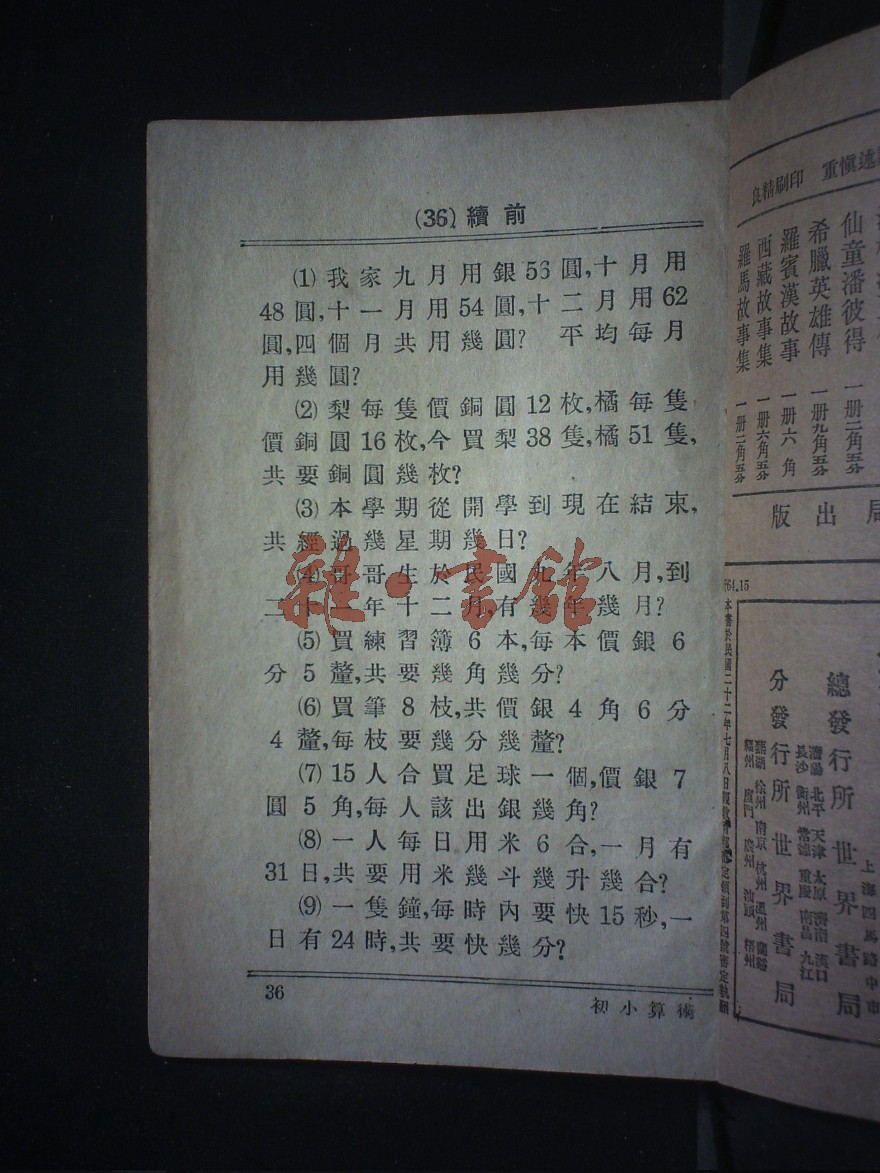 (36) 續前
(1) 我家九月用銀56圓,十月用
48圓,十一月用54圓,十二月用62
圓,四個月共用幾圓? 平均每月
用幾圓?
(2) 梨每隻價銅圓12枚,橘每隻
價銅圓16枚,今買梨38隻,橘51隻,
共要銅圓幾枚?
(3) 本學期從開學到現在結束,
共經過幾星期幾日?
(4) 哥哥生於民國九年八月,到
二十一年十二月,有幾年幾月?
(5) 買練習簿6本,每本價銀6
分5釐,共要幾角幾分?
(6) 買筆8枝,共價銀4角6分
4釐,每枝要幾分幾釐?
(7) 15人合買足球一個,價銀7
圓5角,每人該出銀幾角?
(8) 一人每日用米6合,一月有
31日,共要用米幾斗幾升幾合?
(9) 一隻鐘,每時內要快15秒,一
日有24時,共要快幾分?
36
初小算術
雜·書館
重慎述
良精刷印
仙童潘彼得 一冊二角五分
希臘英雄傳 一冊九角五分
羅賓漢故事 一冊六角
西藏故事集 一冊六角五分
羅馬故事集 一冊二角五分
局出版
64.15
上海四馬路中市
總發行所 世界書局
分發行所 世界書局
瀋陽 北平 天津 太原 濟南 漢口
長沙 衡州 常德 重慶 南昌 九江
蕪湖 徐州 南京 杭州 溫州 蘭谿
福州 廈門 廣州 汕頭 梧州
本書於民國二十二年七月八日